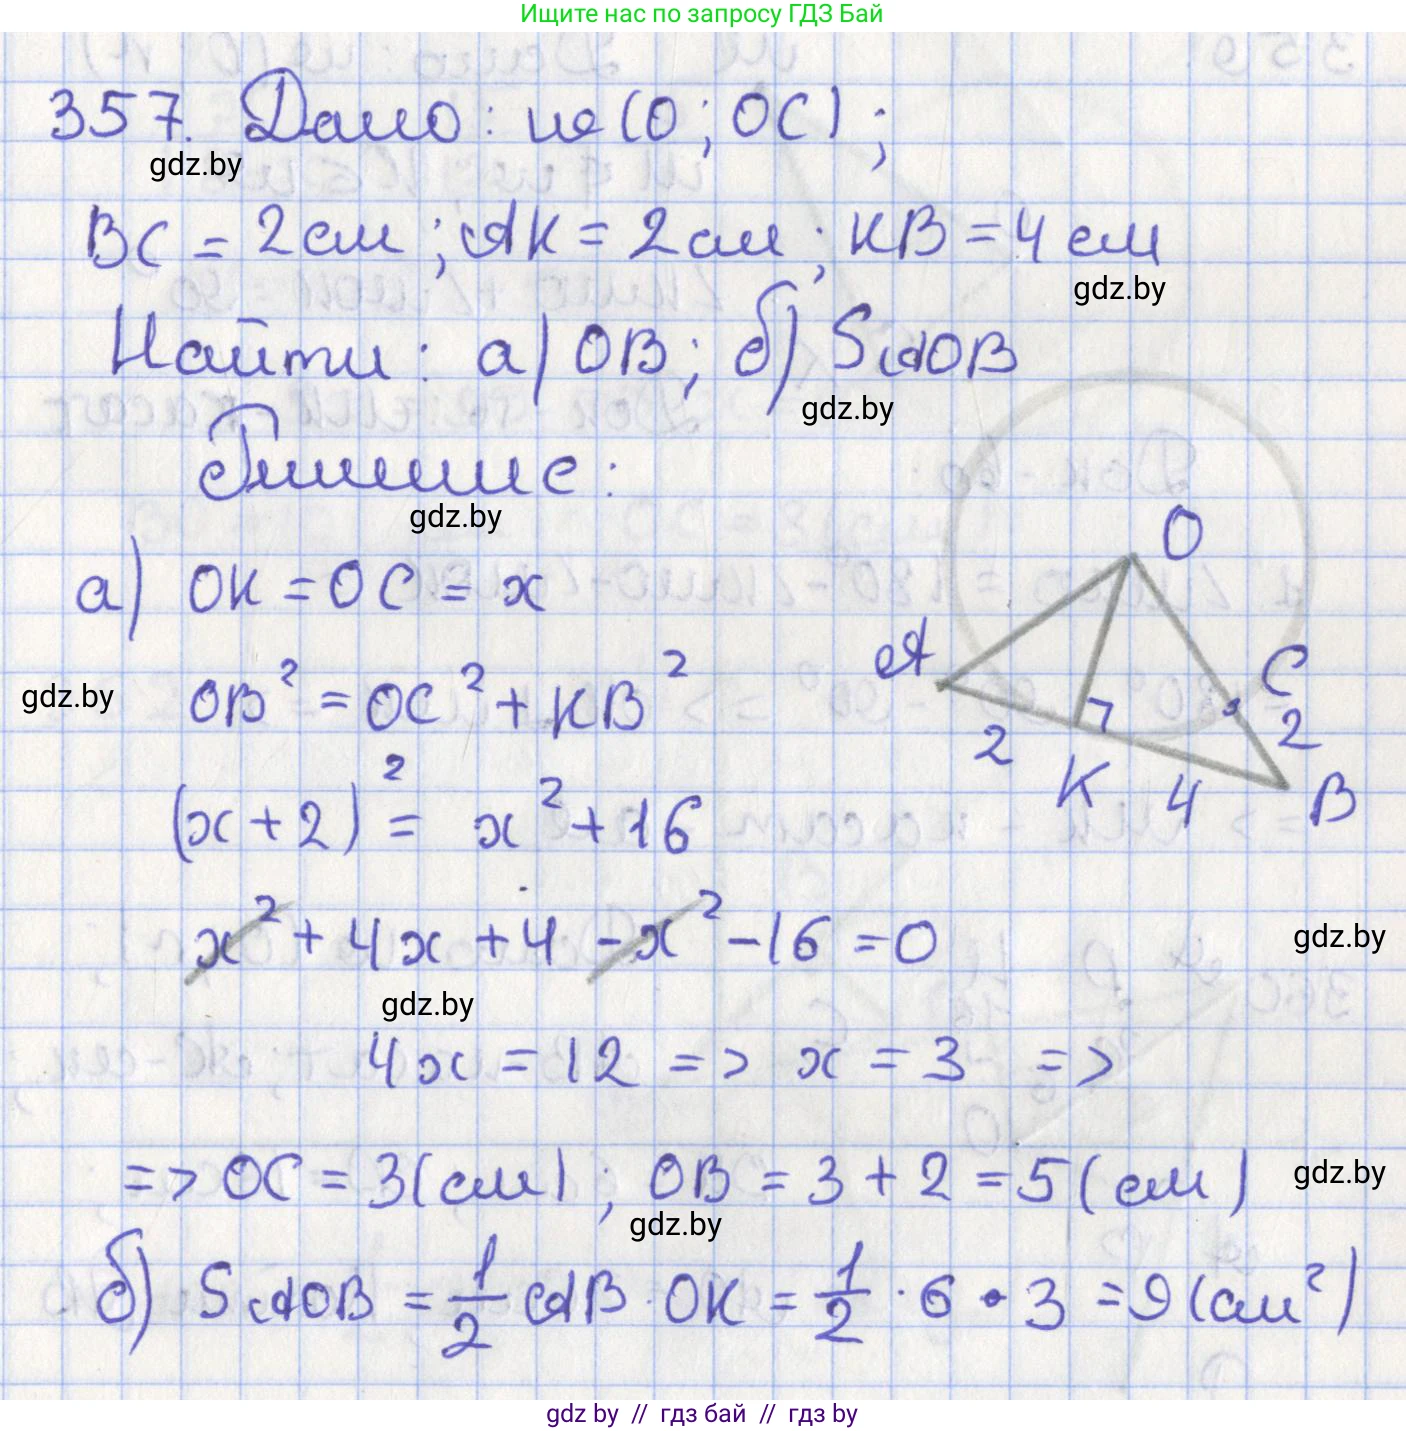 Ищите нас по запросу ГДЗ Бай
357. Дано: (O; OC);
gdz.by
BC = 2см; AK = 2см; KB = 4 см
gdz.by
Найти: а) OB; б) SAOB
gdz.by
Решение:
gdz.by
а) OK = OC = x
gdz.by
OB² = OC² + KB²
(x + 2)² = x² + 16
x² + 4x + 4 - x² - 16 = 0
gdz.by
gdz.by
4x = 12 => x = 3 =>
=> OC = 3(см); OB = 3 + 2 = 5(см)
gdz.by
gdz.by
б) SAOB = 1/2 AB · OK = 1/2 · 6 · 3 = 9(см²)
O
A
C
2
2
K
4
B
gdz by // гдз бай // гдз by